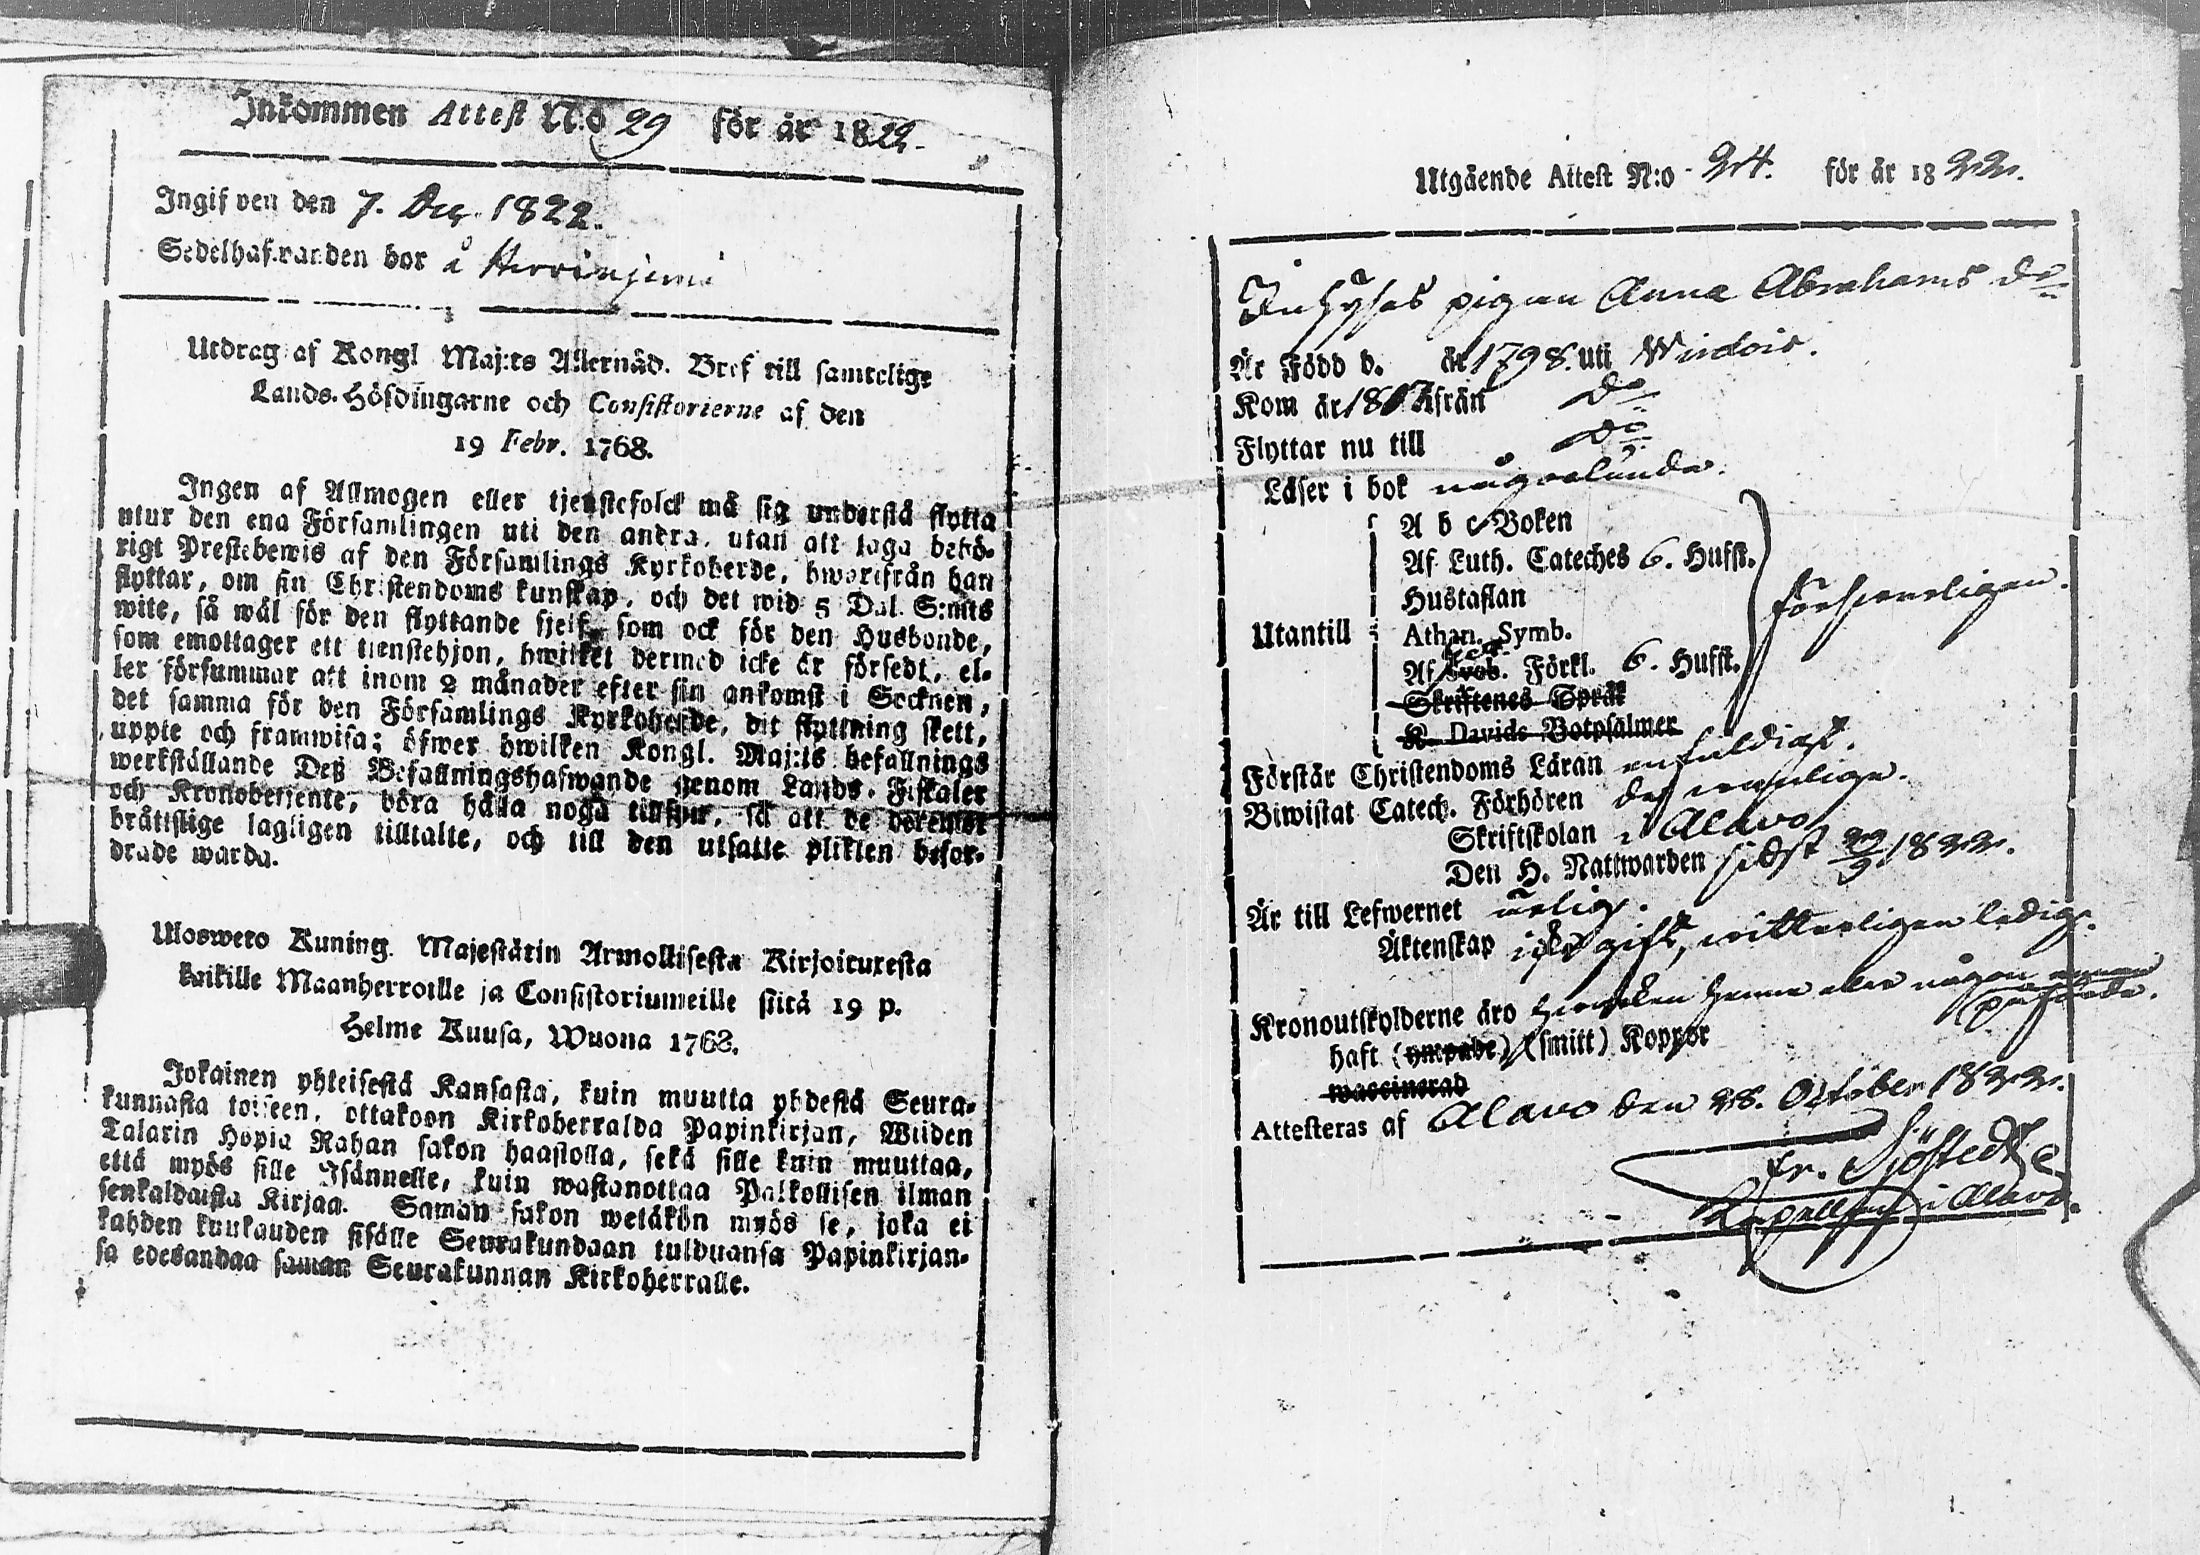 Inkommen Attest N:o 29 för år 1822.
Ingifven den 7. Dec. 1822.
Sedelhafvanden bor å
Utdrag af Kongl Maj:ts Allernåd. Bref till samtelige
Lands-Höfdingarne och Consistorierne af den
19 Febr. 1768.
Ingen af Allmogen eller tjenstefolck må sig understå flytta
utur den ena Församlingen uti den andra, utan att taga behö-
rigt Prestebewis af den Församlings Kyrkoherde, hworifrån han
flyttar, om sin Christendoms kunskap, och det wid 5 Dal. S:mts
wite, så wäl för den flyttande sjelf, som ock för den Husbonde,
som emottager ett tienstehjon, hwilket dermed icke är försedt, el-
ler försummar att inom 2 månader efter sin ankomst i Socknen,
det samma för den Församlings Kyrkoherde, dit flyttning skett,
uppte och framwisa; öfwer hwilken Kongl. Maj:ts befallnings
werkställande Deß Befallningshafwande genom Lands-Fiskaler
och Kronobetjente, böra hålla noga tillsyn, så att de
bråttslige lagligen tilltalte, och till den utsatte plikten befor-
drade warda.
Uloswето Kuning. Majestätin Armollisesta Kirjoituxesta
kaikille Maanherroille ja Consistoriumeille siitä 19 p.
Helme Kuusa, Wuona 1768.
Jokainen yhteisestä Kansasta, kuin muutta yhdestä Seura-
kunnasta toiseen, ottakoon Kirkoherralda Papinkirjan, Wiiden
Talarin Hopia Rahan sakon haastolla, sekä sille kuin muuttaa,
että myös sille Isännelle, kuin wastanottaa Palkollisen ilman
senkaldaista Kirjaa. Saman sakon wetäkön myös se, joka ei
kahden kuukauden sisälle Seurakundaan tulduansa Papinkirjan-
sa edesandaa saman Seurakunnan Kirkoherralle.
Utgående Attest N:o 24. för år 1822.
Inhyses pigan Anna Abrahams dr
Är Född d. år 1798. uti Windois.
Kom år 1817 ifrån Do
Flyttar nu till Do
Läser i bok någorlunda.
A b c Boken
Af Luth. Cateches 6. Hufst.
Hustaflan
Utantill Athan. Symb. försvarligen.
Af Sveb. Förkl. 6. Hufst.
Skriftenes Språk
K. Davids Botpsalmer
Förstår Christendoms Läran enfaldigt.
Biwistat Catech. Förhören
Skriftskolan i Alavo
Den H. Nattwarden sidst 22/9 1822.
Är till Lefwernet ärlig.
Äktenskap icke gift, witterligen ledig.
Kronoutskylderne äro hwarken henne eller någon annan
påförde.
haft (ympade) (smitt) Koppor
waccinerad
Attesteras af Alavo den 28. October 1822.
Er. Sjöstedt
Kapellan i Alavo.